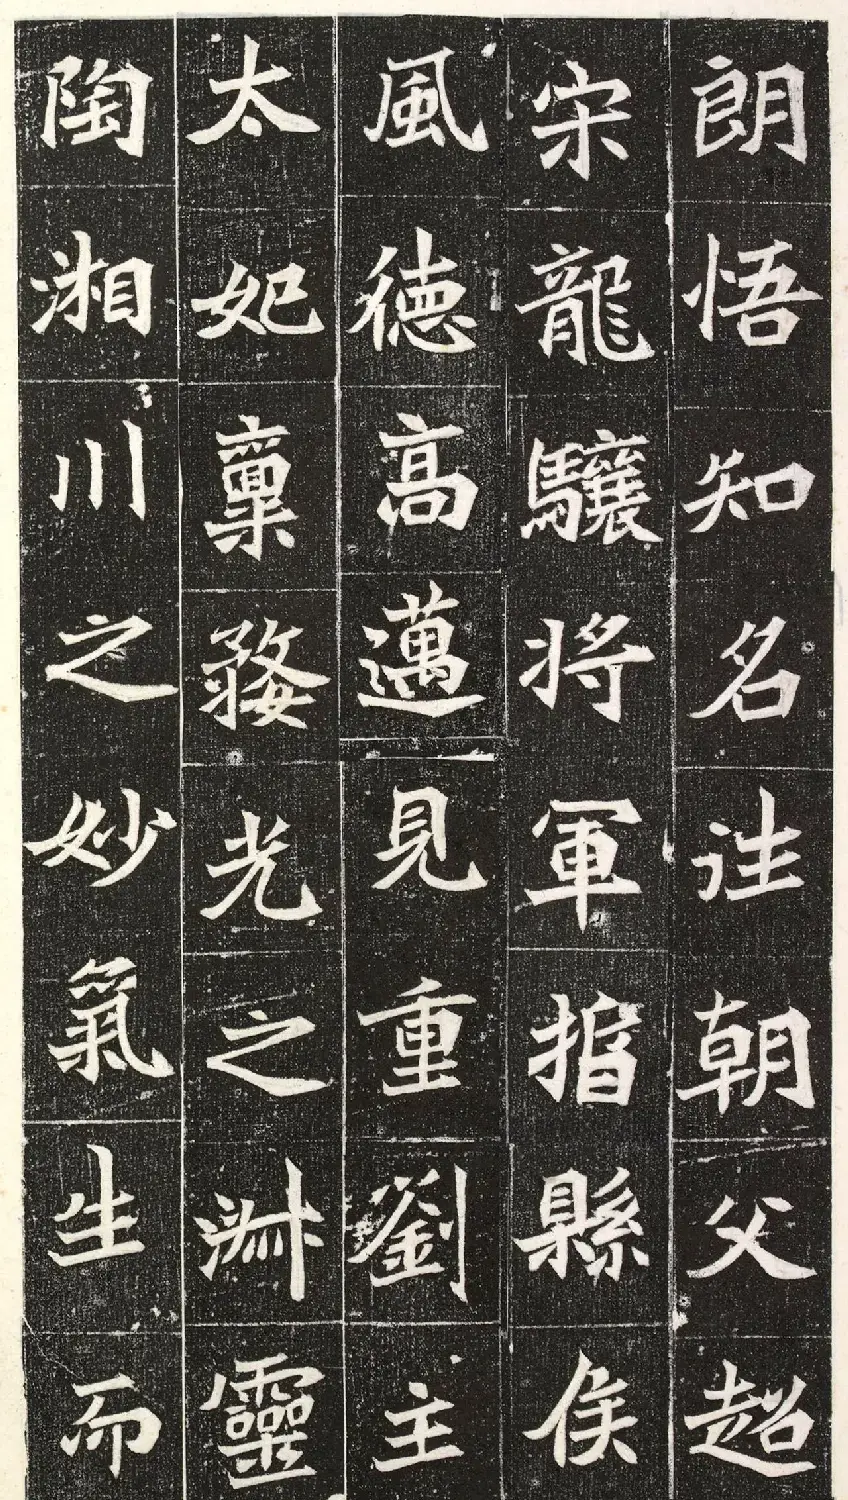 朗悟知名往朝父超
宋龍驤將軍指縣侯
風德高邁見重劉主
太妃稟婺光之淑靈
陶湘川之妙氣生而